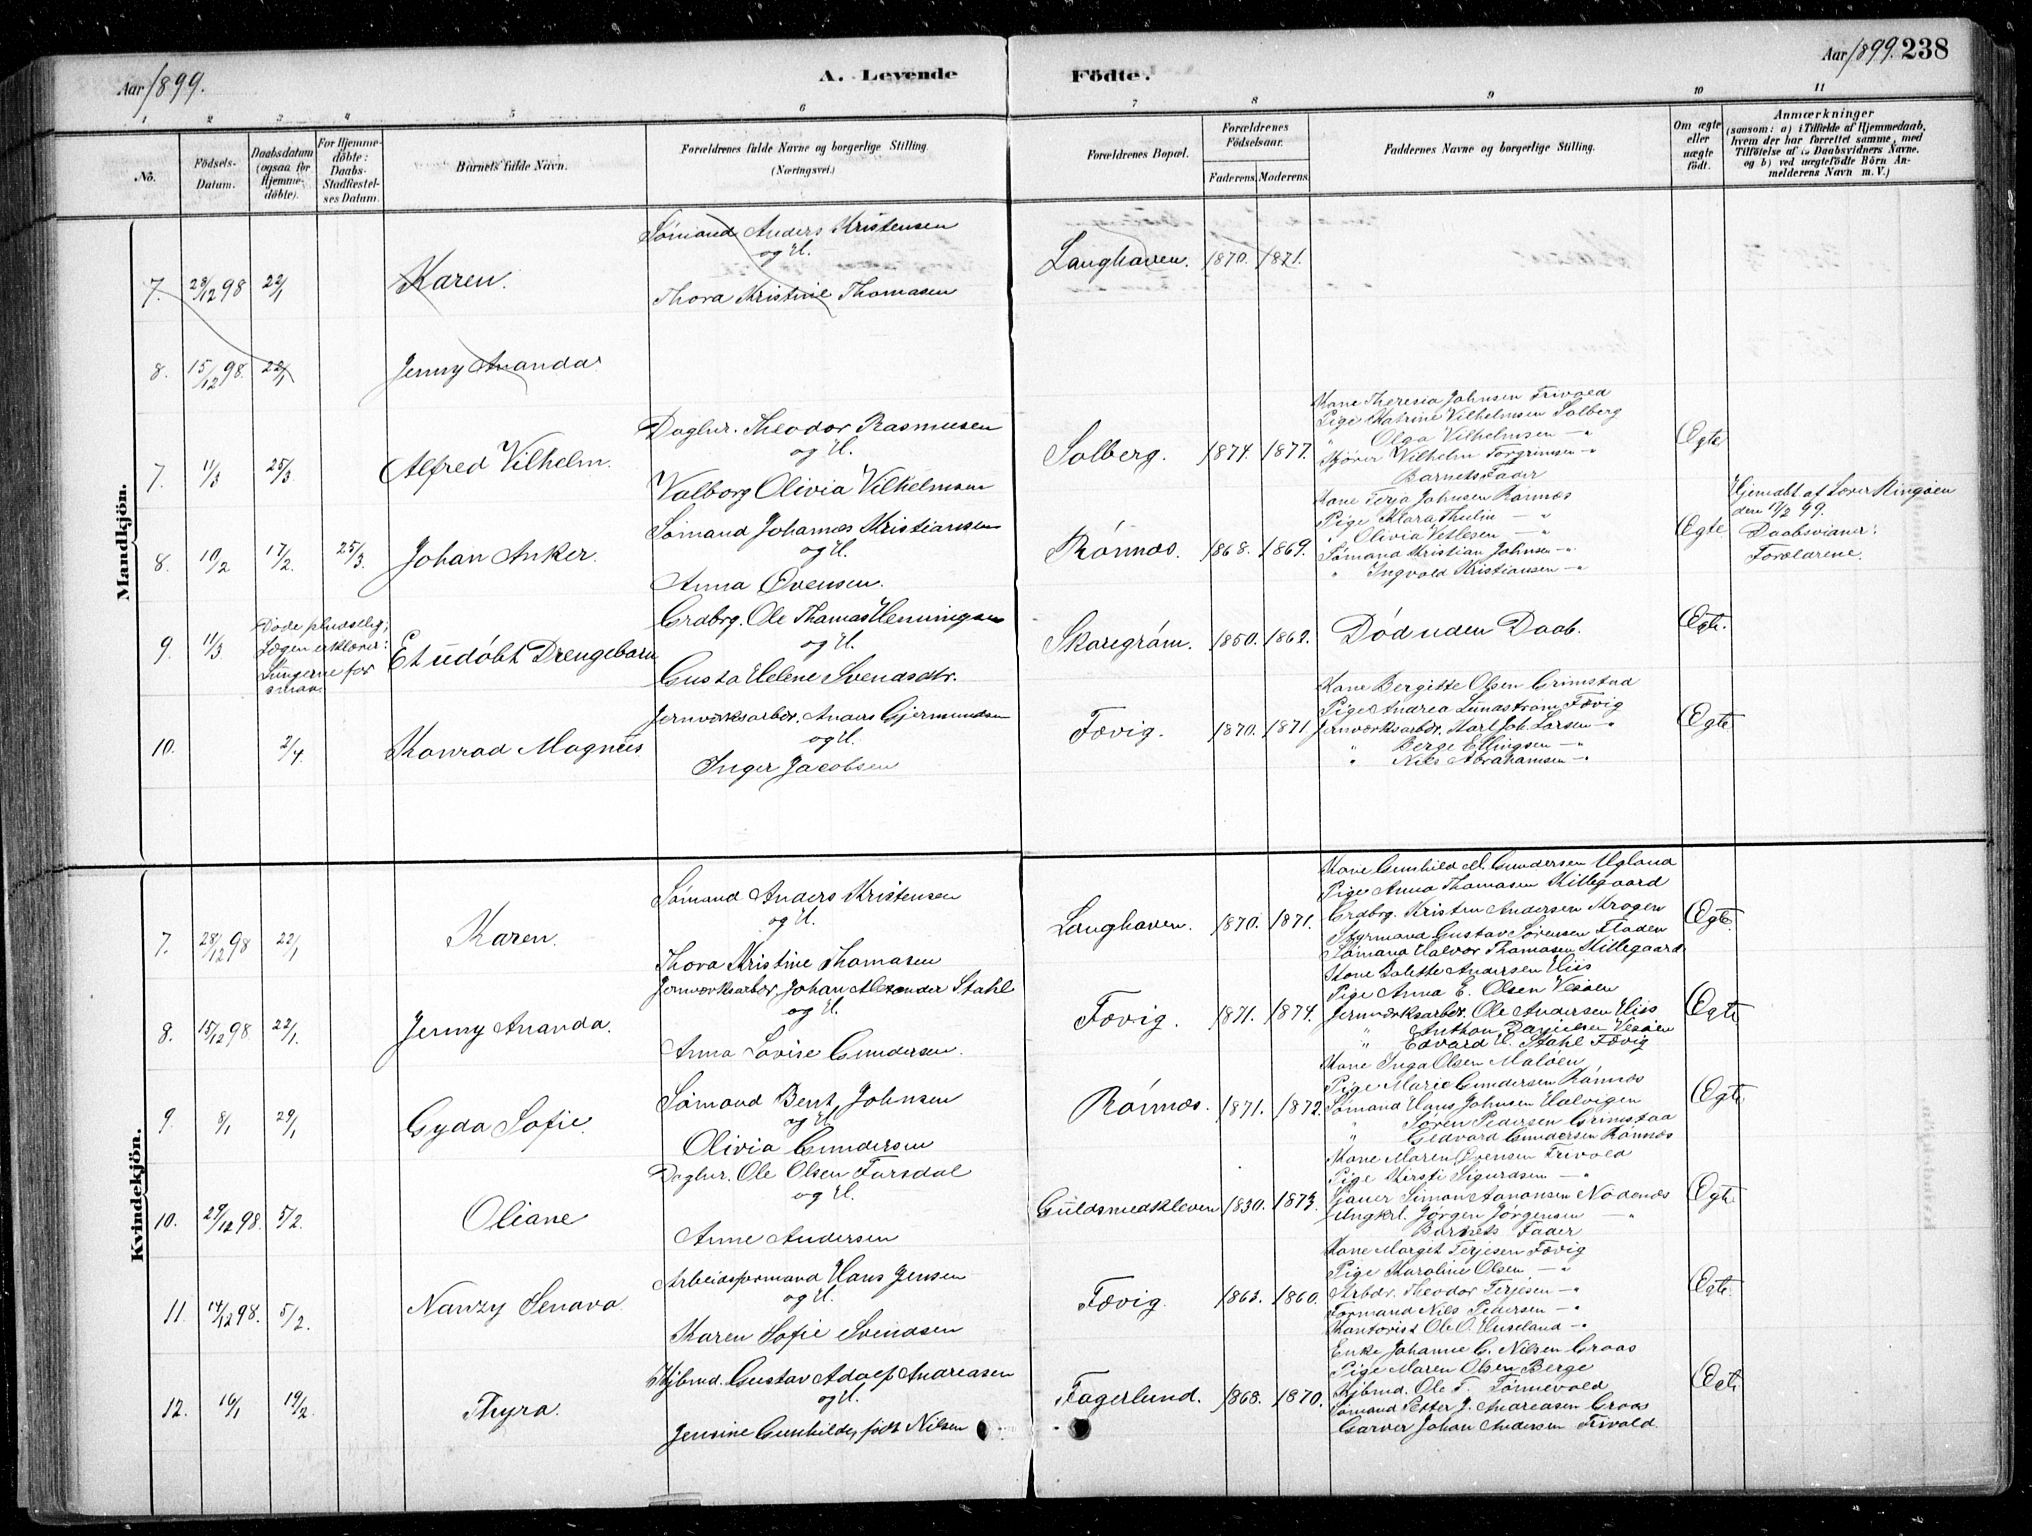 Aar 1899.
A. Levende
Födte.
Aar 1899. 238
1 2 3 4 5 6 7 8 9 10 11
No.
Födsels-Datum.
Daabsdatum (ogsaa for Hjemme-döbte).
For Hjemme-döbte: Daabs-Stadfæstel-ses Datum.
Barnets fulde Navn.
Forældrenes fulde Navne og borgerlige Stilling. (Næringsvei.)
Forældrenes Bopæl.
Forældrenes Födselsaar.
Faderens. Moderens.
Faddernes Navne og borgerlige Stilling.
Om ægte eller uægte födt.
Anmærkninger
(saasom: a) i Tilfælde af Hjemmedaab, hvem der har forrettet samme, med Tilföielse af Daabsvidners Navne, og b) ved uægtefödte Börn Anmelderens Navn m. V.)
Mandkjön.
7. 28/12 98 22/1 Karen.
Sømand Anders Kristensen
og H.
Thora Kristine Thomasen
Langhaven. 1870. 1871.
8. 15/12 98. 22/1 Jenny Ananda
7. 11/3 25/3 Alfred Vilhelm.
Daglnr. Theodor Rasmusen
og H.
Valborg Olivia Vilhelmsen
Solberg. 1874. 1877.
Kone Theresia Johnsen Frivold
Pige Katrine Vilhelmsen Solberg
" Olga Vilhelmsen -"-
Kjører Vilhelm Torgrimsen -"-
Barnets Fader
Ægte
8. 10/2 17/2. 25/3. Johan Anker.
Sømand Johannes Kristiansen
og H.
Anna Evensen.
Rønnæs. 1868. 1869.
Kone Terja Johnsen Rønnæs
Pige Klara Thulin -"-
" Olivia Vetlesen -"-
Sømand Kristian Johnsen -"-
" Ingvald Kristiansen -"-
Ægte
Hjemdbt af Lærer Ringøen
den 17/2 99.
Daabsvidner:
Forældrene.
9. 11/3
Døde pludselig;
Lægen erklærer:
Lungerne for
smaa.
Et udøbt Drengebarn
Grdbrg. Ole Thomas Henningsen
og H.
Gusta Helene Svendsdtr.
Skaregrøm. 1850. 1862.
Død uden Daab.
Ægte.
10. 2/4 Konrad Magnus
Jernværksarbdr. Anders Gjermundsen
og H.
Inger Jacobsen
Fævig. 1870. 1871.
Kone Bergitte Olsen Grimstad
Pige Andrea Lundstrøm Fævig
Jernværksarbdr. Karl Joh. Larsen -"-
" Berge Ellingsen -"-
" Nils Abrahamsen -"-
Ægte
Kvindekjön.
7. 28/12 98 22/1 Karen.
Sømand Anders Kristensen
og H.
Thora Kristine Thomasen
Langhaven. 1870. 1871.
Kone Gunhild M. Gundersen Ugland
Pige Anna Thomasen Killegaard
Grdbrg. Kristen Andersen Krogen
Styrmand Gustav Sørensen Fladen
Sømand Halvor Thomasen Killegaard
Ægte.
8. 15/12 98 22/1. Jenny Ananda.
Jernværksarbdr. Johan Alexander Stahl
og H.
Anna Lovise Gundersen.
Fævig. 1871. 1874.
Kone Galette Andersen Hiis
Pige Anna E. Olsen Vesøen
Jernværksarbdr. Ole Andersen Hiis
" Anthon Danielsen Vesøen
" Edvard H. Stahl Fævig
Ægte
9. 8/1 29/1 Gyda Sofie.
Sømand Bent Johnsen
og H.
Olivia Gundersen
Rønnæs. 1871. 1872.
Kone Inga Olsen Maløen
Pige Marie Gundersen Rønnæs
Sømand Hans Johnsen Halvigen
" Søren Pedersen Grimstad
" Gedvard Gundersen Rønnæs
Ægte
10. 29/12 98. 5/2. Oliane
Daglnr. Ole Olsen Farsdal
og H.
Anne Andersen
Guldsmedkleven 1830. 1873.
Kone Maren Evensen Frivold
Pige Kirsti Sigurdsen -"-
Gaver Simon Aanonsen Nødenæs
Ungkrl. Jørgen Jørgensen -"-
Barnets Fader
Ægte
11. 14/12 98. 5/2. Nanzy Senava
Arbeidsformand Hans Jensen
og H.
Karen Sofie Svendsen
Fævig. 1863. 1860.
Kone Margit Terjesen Fævig
Pige Karoline Olsen -"-
Arbdr. Theodor Terjesen -"-
Formand Nils Pedersen -"-
Kontorist Ole O. Huseland -"-
Ægte.
12. 16/1 19/2. Thyra.
Kjbmd. Gustav Adolf Andreasen
og H.
Jensine Gunhilde, født Nilsen
Fagerlund. 1868. 1870.
Enke Johanne G. Nilsen Groos
Pige Maren Olsen Berge
Kjbmd. Ole T. Tønnevold
Sømand Petter J. Andreasen Groos
Garver Johan Andersen Frivold.
Ægte